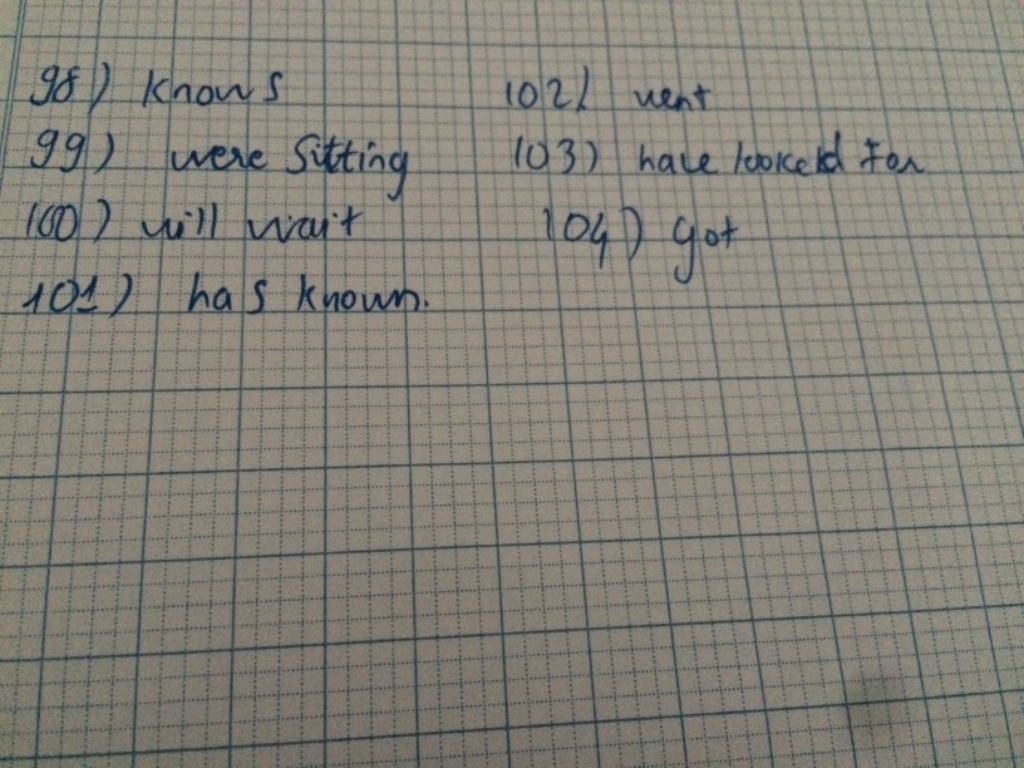 98) knows
99) were sitting
100) will wait
101) has known.
102) went
103) have looked for
104) got